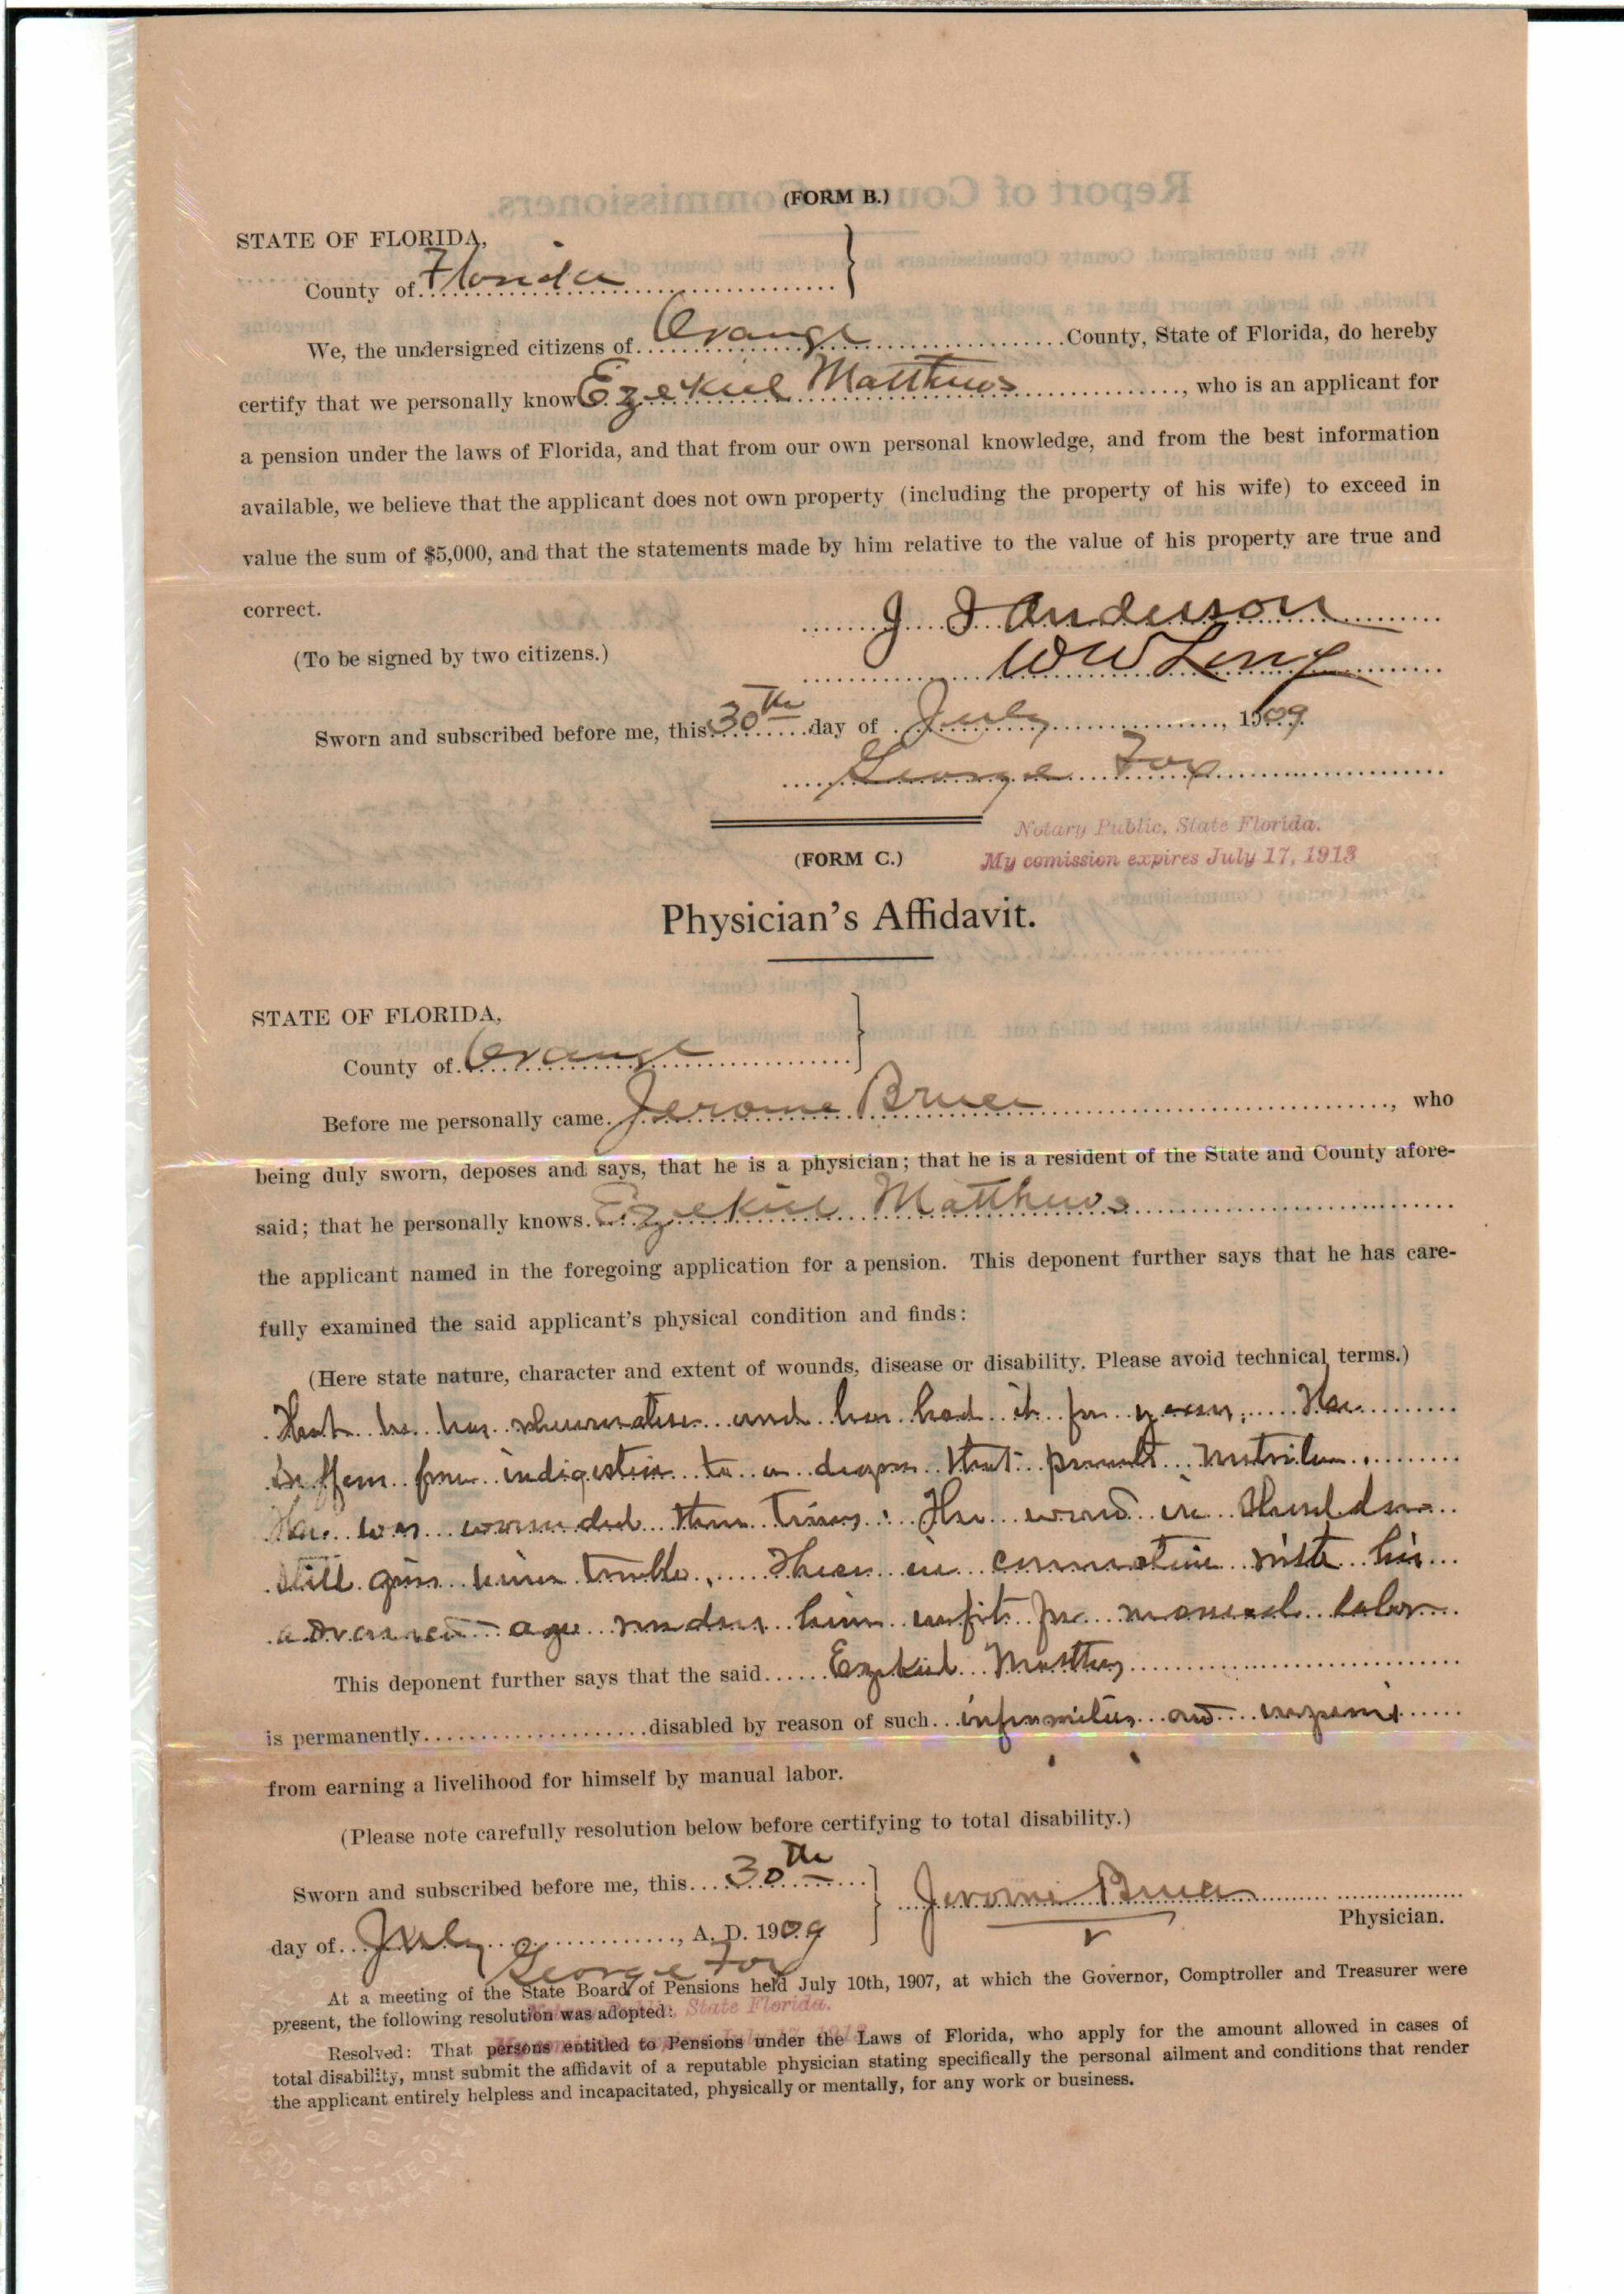 (FORM B.)
STATE OF FLORIDA,
County of Florida
We, the undersigned citizens of Orange County, State of Florida, do hereby
certify that we personally know Ezekiel Matthews, who is an applicant for
a pension under the laws of Florida, and that from our own personal knowledge, and from the best information
available, we believe that the applicant does not own property (including the property of his wife) to exceed in
value the sum of $5,000, and that the statements made by him relative to the value of his property are true and
correct.
J J Anderson
(To be signed by two citizens.)
W W Long
Sworn and subscribed before me, this 30th day of July, 1909
George Fox
Notary Public, State Florida.
My comission expires July 17, 1913
(FORM C.)
Physician's Affidavit.
STATE OF FLORIDA,
County of Orange
Before me personally came Jerome Bruce, who
being duly sworn, deposes and says, that he is a physician; that he is a resident of the State and County afore-
said; that he personally knows Ezekiel Matthews
the applicant named in the foregoing application for a pension. This deponent further says that he has care-
fully examined the said applicant's physical condition and finds:
(Here state nature, character and extent of wounds, disease or disability. Please avoid technical terms.)
That he has rheumatism and has had it for years. He
suffers from indigestion to a degree that prevents nutrition.
He was wounded three times. The wound in shoulder
still gives him trouble. These in connection with his
advanced age renders him unfit for manual labor
This deponent further says that the said Ezekiel Matthews
is permanently disabled by reason of such infirmities and
from earning a livelihood for himself by manual labor.
(Please note carefully resolution below before certifying to total disability.)
Sworn and subscribed before me, this 30th
Jerome Bruce
Physician.
day of July, A. D. 1909
George Fox
At a meeting of the State Board of Pensions held July 10th, 1907, at which the Governor, Comptroller and Treasurer were
present, the following resolution was adopted:
State Florida.
Resolved: That persons entitled to Pensions under the Laws of Florida, who apply for the amount allowed in cases of
total disability, must submit the affidavit of a reputable physician stating specifically the personal ailment and conditions that render
the applicant entirely helpless and incapacitated, physically or mentally, for any work or business.